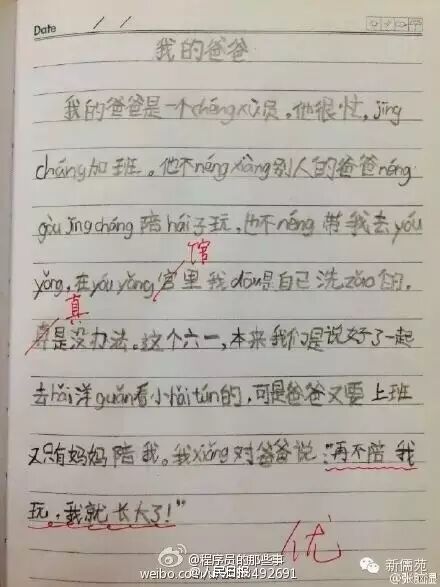 Date / /
我的爸爸
我的爸爸是一个chéngxù员。他很忙,jīng
cháng加班。他不néng xiàng别人的爸爸néng
gòu jīng cháng 陪hái子玩,也不néng 带我去yóu
馆
yǒng,在yóu yǒng官里 我dōu是自己 洗zǎo的。
真
真是没办法。这个六一,本来我们是说好了一起
去hǎi洋guǎn看小hǎi tún的,可是爸爸又要上班
又只有妈妈 陪我。我xiǎng对爸爸说:"再不陪我
玩,我就长大了!"
优
@程序员的那些事
@人民日报
新儒苑